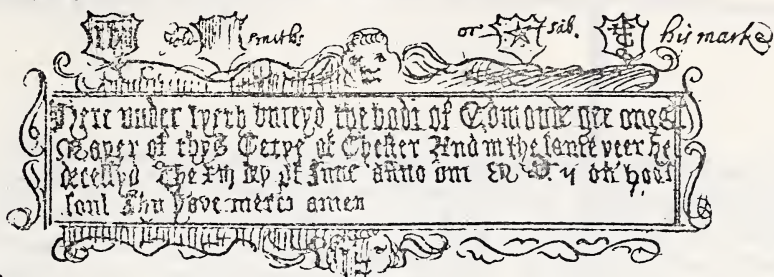 Smiths or sab. his marke
Here under lyeth buryed the bodi of Edmonde gee ones
Mayer of thys Cetye of Chester And in the same yeer he
decessyd The day of June anno om M on hoos
soul Jhu have merci amen